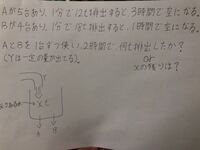 Aが5台あり、1分で12t排出すると、3時間で空になる。
Bが4台あり、1分で18t排出すると、1時間で空になる。
AとBを1台ずつ使い、2時間で、何t排出したか?
(Yは一定の量が出てる)
or
Xの残りは?
Y
Xt
A
B